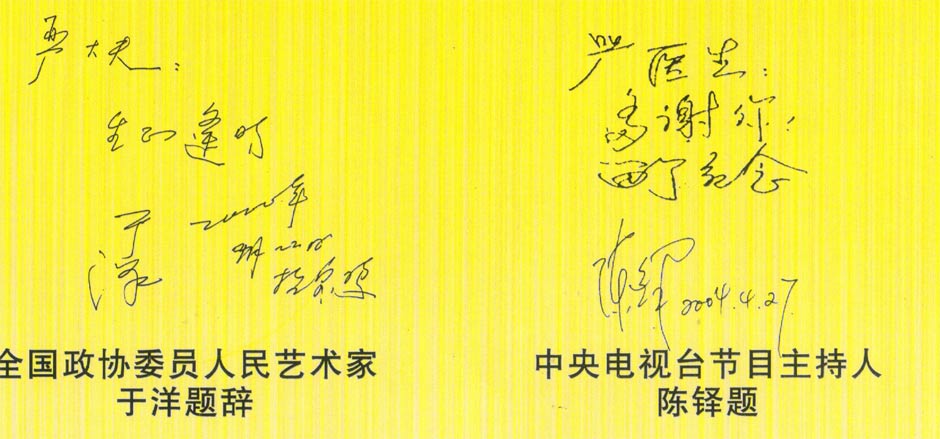 严大夫：
生正逢时
于洋
2000年
严医生：
多谢你！
留予纪念
陈铎 2004.4.27
全国政协委员人民艺术家
于洋题辞
中央电视台节目主持人
陈铎题